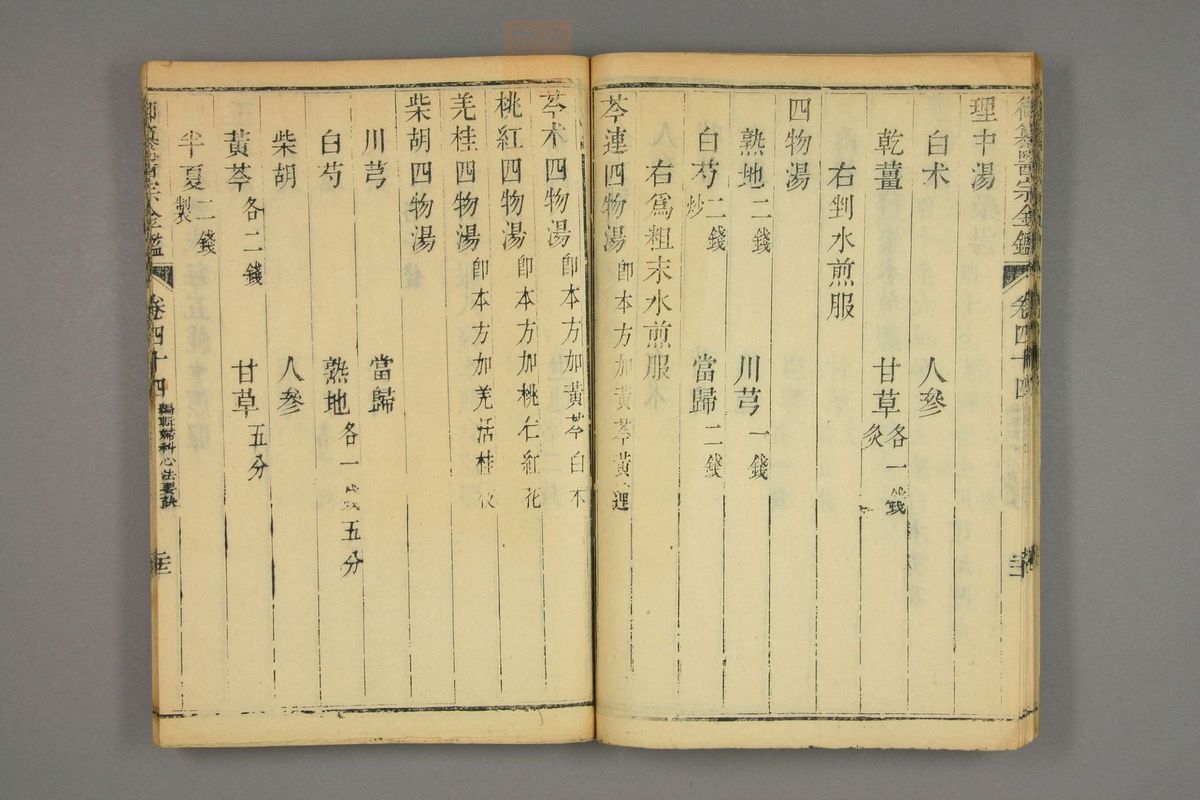 御纂醫宗金鑑 卷四十四
理中湯
白朮 人參
乾薑 甘草各一錢炙
右剉水煎服
四物湯
熟地二錢 川芎一錢
白芍二錢炒 當歸二錢
右爲粗末水煎服
芩連四物湯 卽本方加黃芩黃連
芩朮四物湯 卽本方加黃芩白朮
桃紅四物湯 卽本方加桃仁紅花
羌桂四物湯 卽本方加羌活桂枝
柴胡四物湯
川芎 當歸
白芍 熟地各一錢五分
柴胡 人參
黃芩各二錢 甘草五分
半夏二錢製
御纂醫宗金鑑 卷四十四 編輯婦科心法要訣